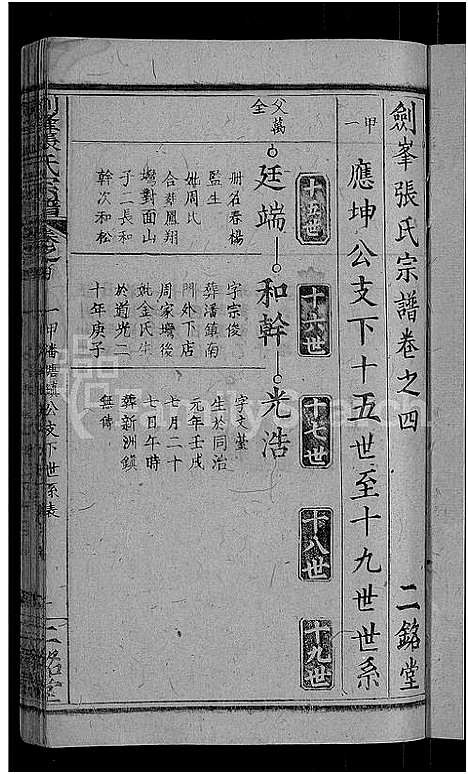 劍峯張氏宗譜卷之四
二銘堂
一甲
應坤公支下十五世至十九世世系
十五世
十六世
十七世
十八世
十九世
父萬
全
廷端
册名春楊
監生
妣周比
合葬鳳翔
壪對面山
子二長和
幹次和松
和幹
字宗俊
葬潘鎮南
門外下店
周家壪後
妣金氏生
於道光二
十年庚子
光浩
字文㙯
生於同治
元年壬戌
七月二十
七日午時
葬新洲鎮
無傳
劍峯張氏宗譜
卷之四
一甲潘塘鎮公支下世系表
二銘堂
FamilySearch